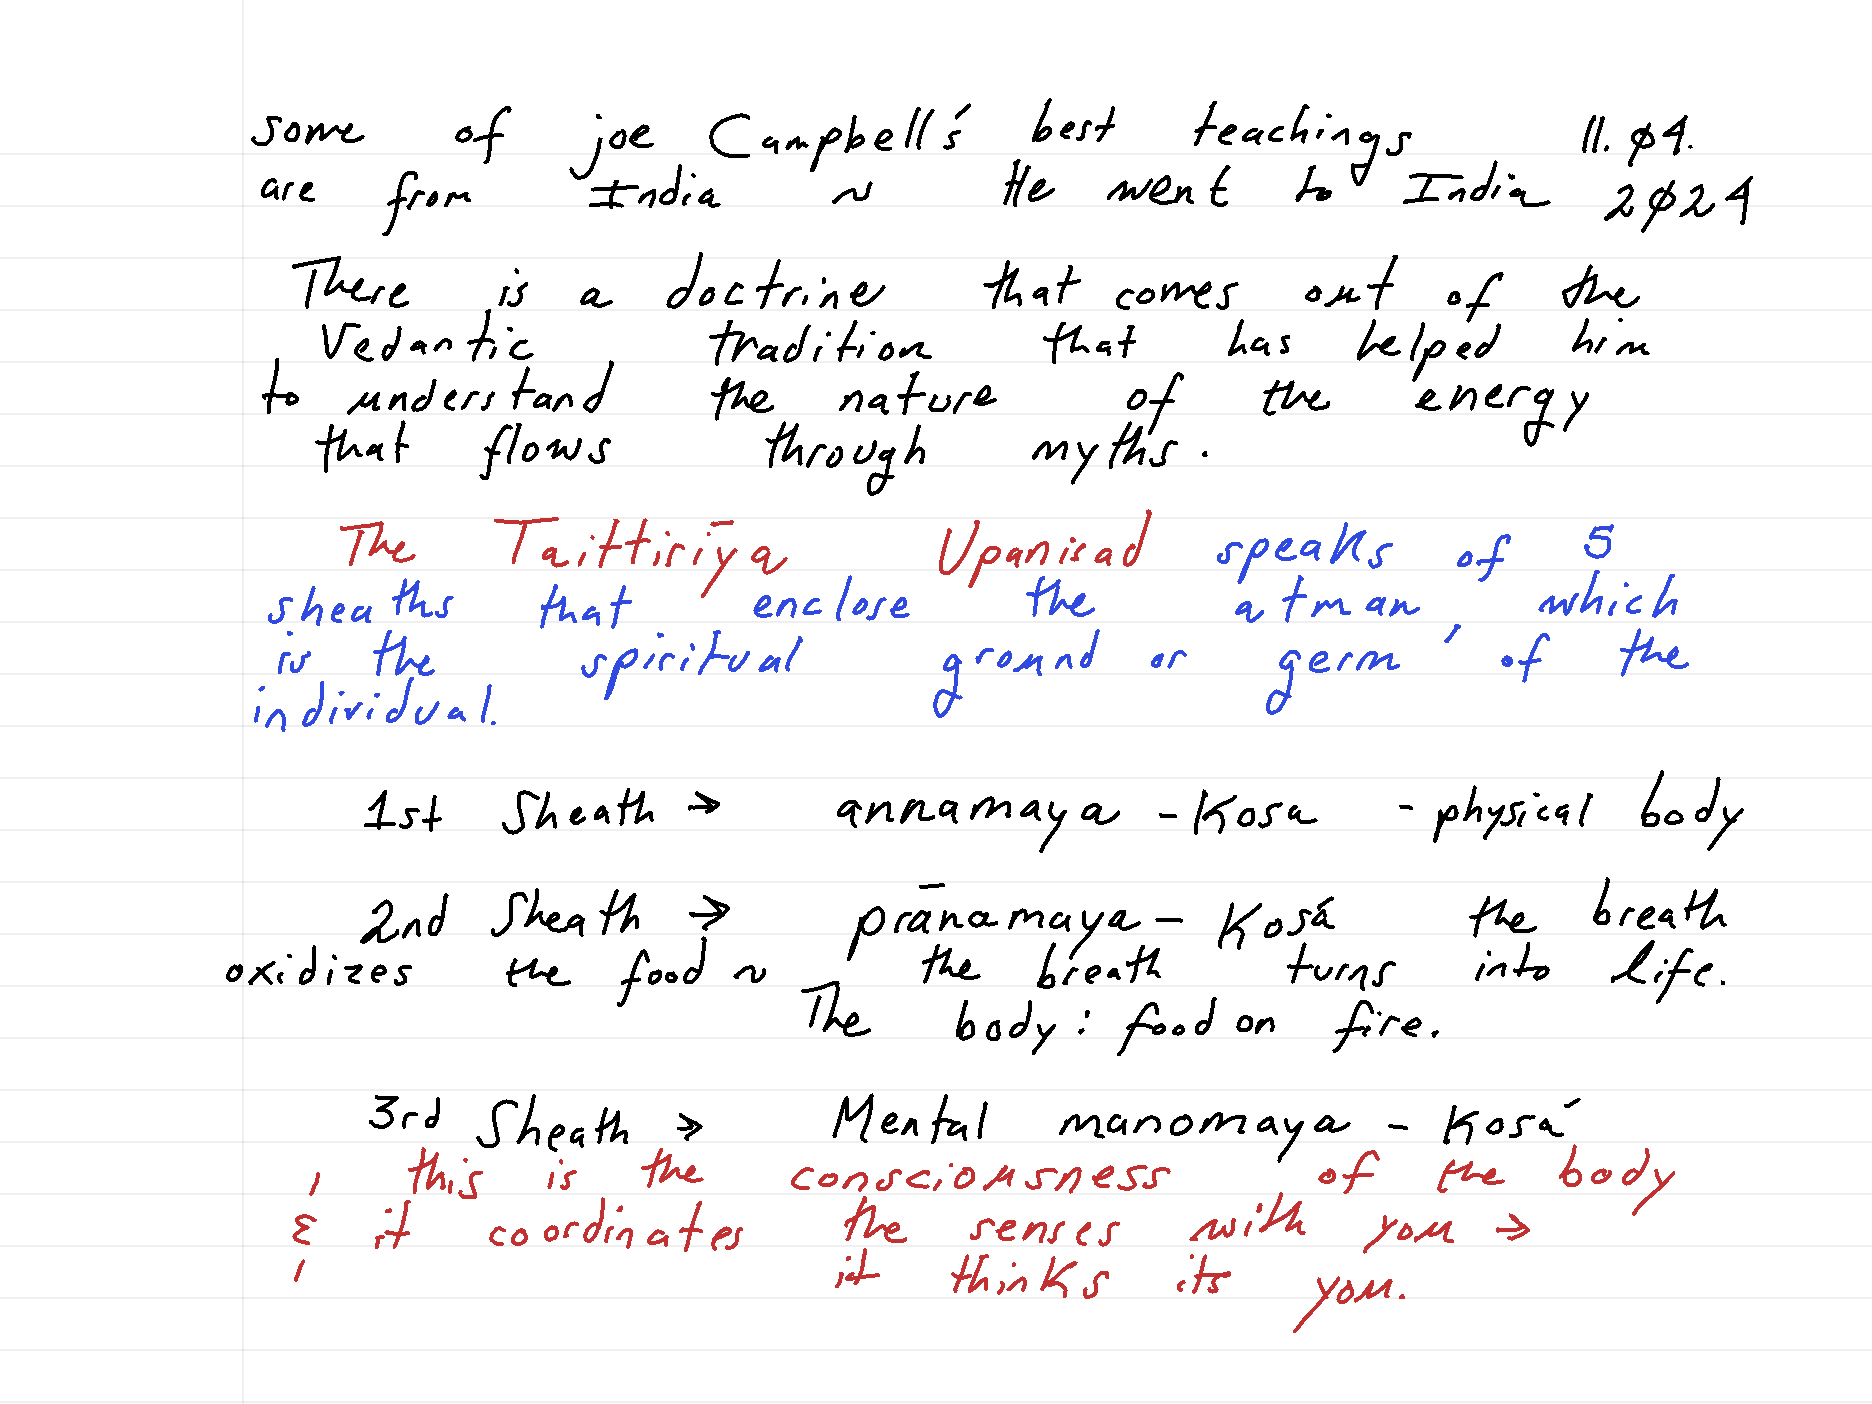 some of joe Campbell's best teachings 11.ø4.
are from India ~ He went to India 2ø24
There is a doctrine that comes out of the
Vedantic tradition that has helped him
to understand the nature of the energy
that flows through myths.
The Taittirīya Upanisad speaks of 5
sheaths that enclose the atman, which
is the spiritual ground or germ of the
individual.
1st Sheath → annamaya - Kosa - physical body
2nd Sheath → prānamaya - Kosá the breath
oxidizes the food ~ the breath turns into life.
The body: food on fire.
3rd Sheath → Mental manomaya - Kosá
this is the consciousness of the body
& it coordinates the senses with you →
it thinks its you.